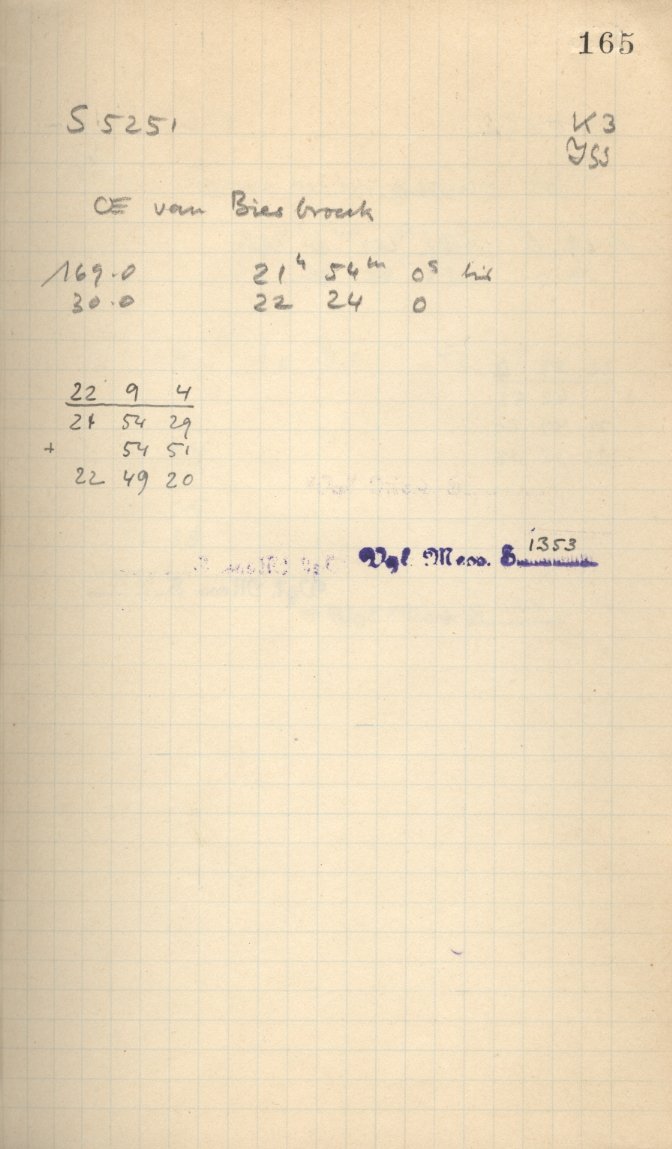 165
S 5251 K 3
OE van Biesbroeck
169.0 21h 54m 0s bis
30.0 22 24 0
22 9 4
21 54 29
+ 54 51
22 49 20
Vgl. Mess. S. 1353